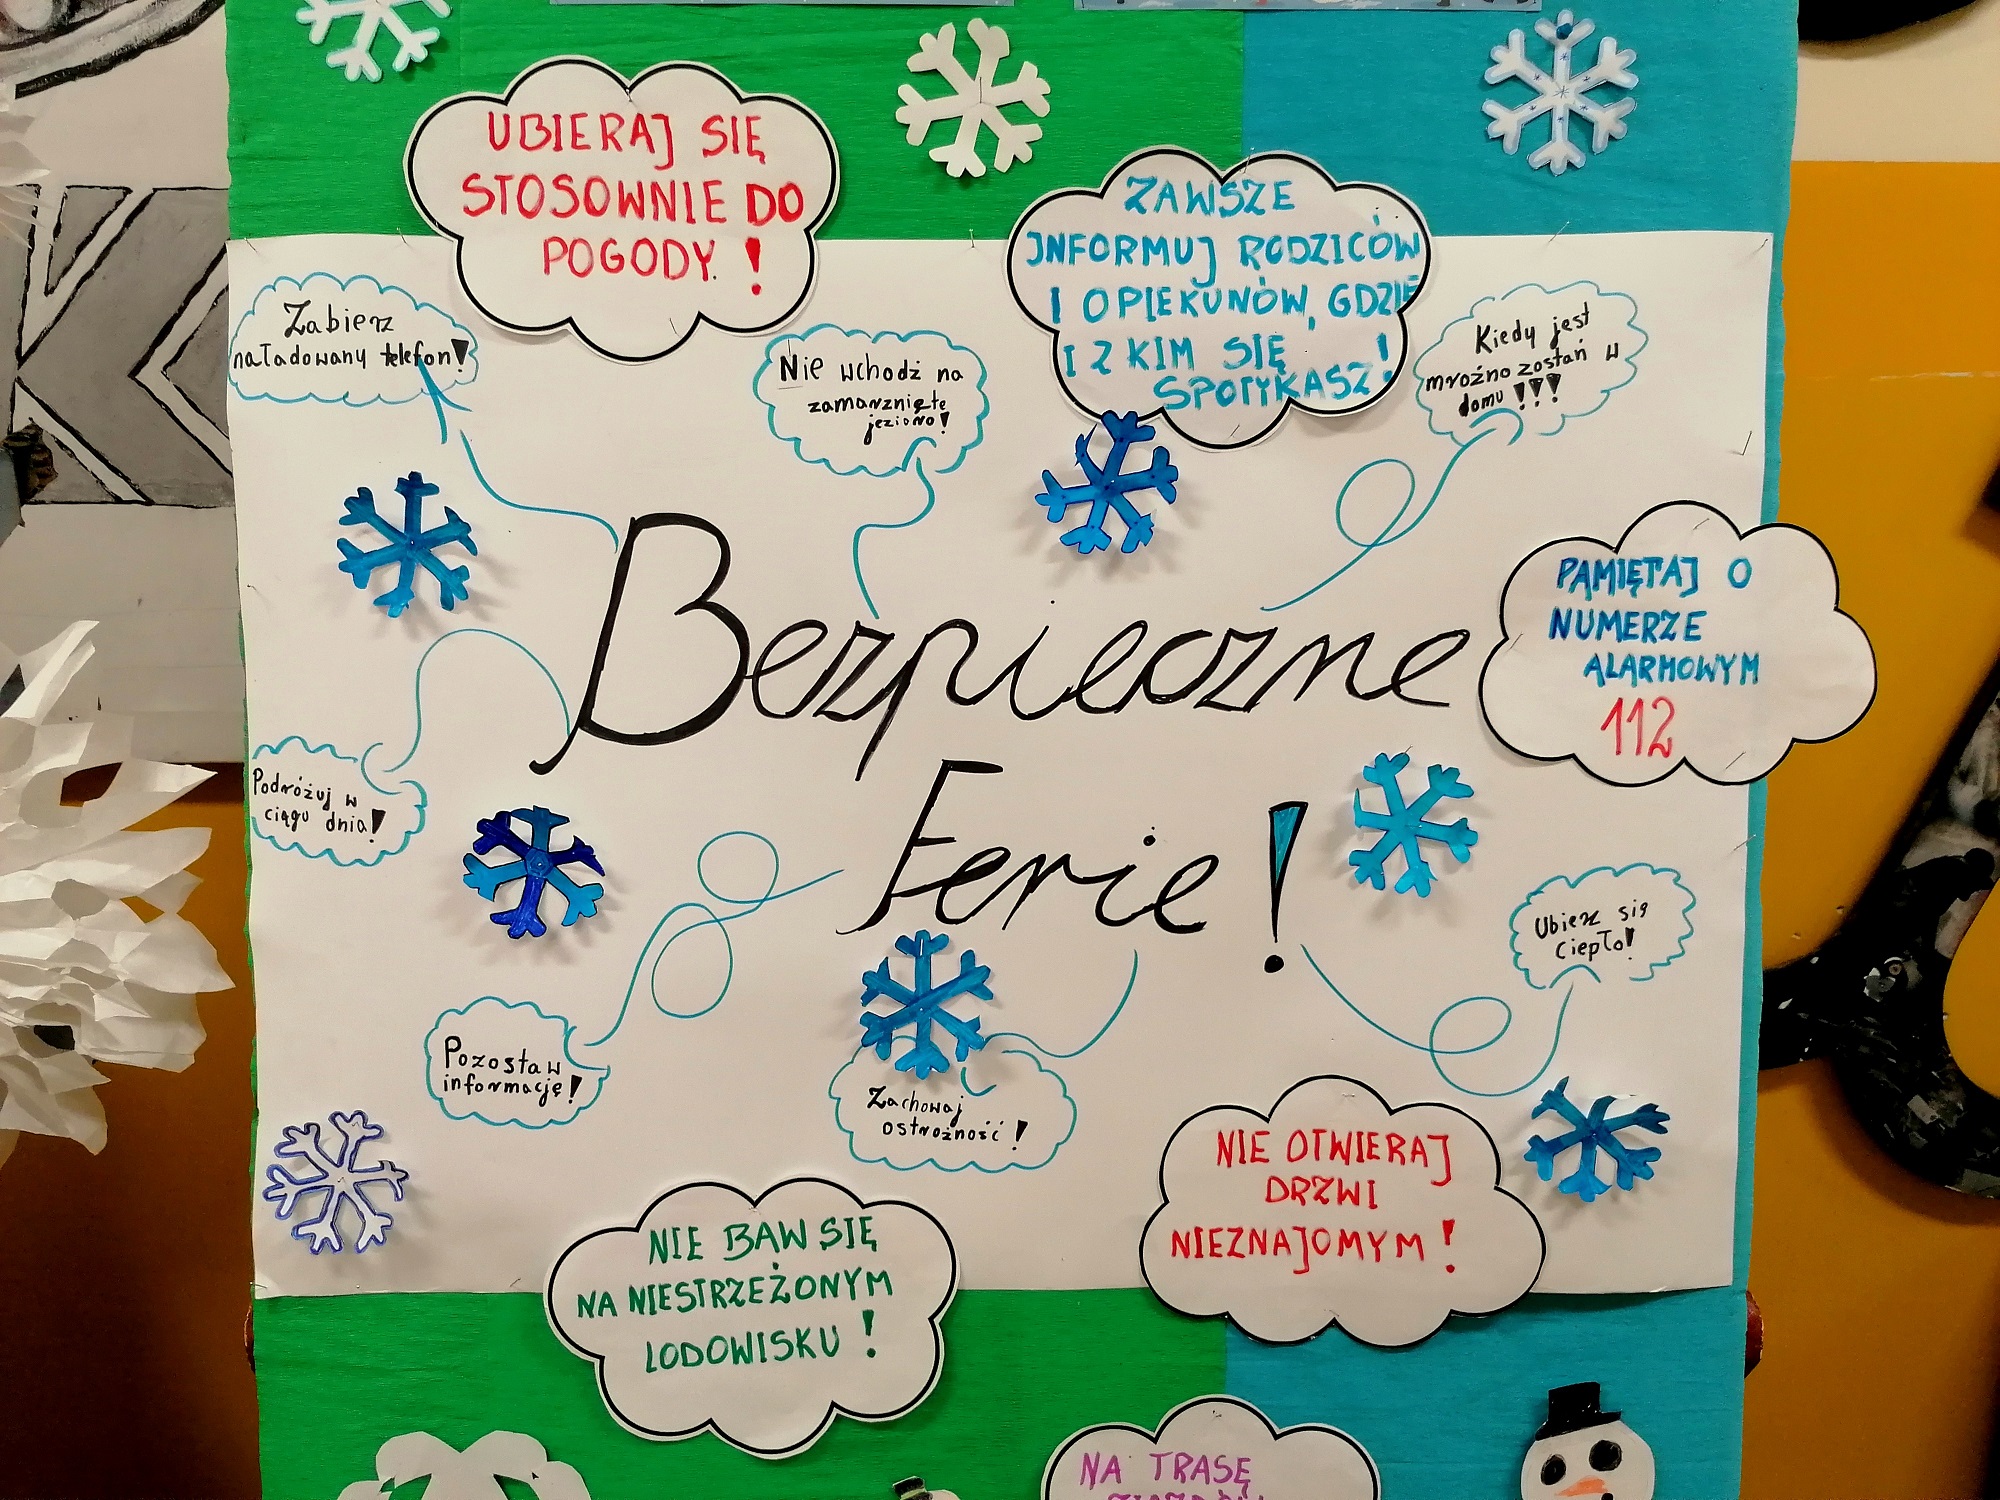 UBIERAJ SIĘ
STOSOWNIE DO
POGODY !
ZAWSZE
INFORMUJ RODZICÓW
I OPIEKUNÓW, GDZIE
I Z KIM SIĘ
SPOTYKASZ !
Zabierz
naładowany telefon!
Nie wchodź na
zamarznięte
jezioro!
Kiedy jest
mroźno zostań w
domu !!!
PAMIĘTAJ O
NUMERZE
ALARMOWYM
112
Bezpieczne
Ferie !
Podróżuj w
ciągu dnia!
Ubierz się
ciepło!
Pozostaw
informację!
Zachowaj
ostrożność !
NIE OTWIERAJ
DRZWI
NIEZNAJOMYM !
NIE BAW SIĘ
NA NIESTRZEŻONYM
LODOWISKU !
NA TRASĘ